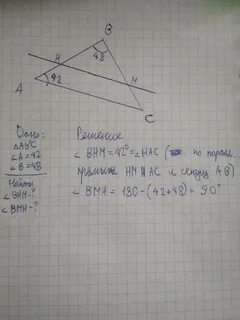 B
48
H
M
A
42
C
Дано:
△ABC
∠A=42
∠B=48
Найти
∠BHM-?
∠BMH-?
Решение
∠BHM=42°=∠HAC ( по парал.
прямым HM∥AC и секущ AB)
∠BMH = 180-(42+48)=90°